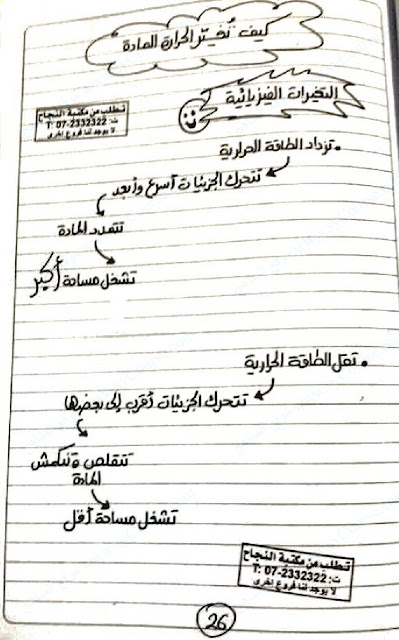 كيف تُغيّر الحرارة المادة
التغيرات الفيزيائية
تطلب من مكتبة النجاح
ت: 07-2332322 T:
لا يوجد لنا فروع اخرى
• تزداد الطاقة الحرارية
تتحرك الجزيئات أسرع وأبعد
تتمدد المادة
تشغل مساحة أكبر
• تقل الطاقة الحرارية
تتحرك الجزيئات أقرب إلى بعضها
تتقلص و تنكمش
المادة
تشغل مساحة أقل
تطلب من مكتبة النجاح
ت: 07-2332322 T:
لا يوجد لنا فروع اخرى
26